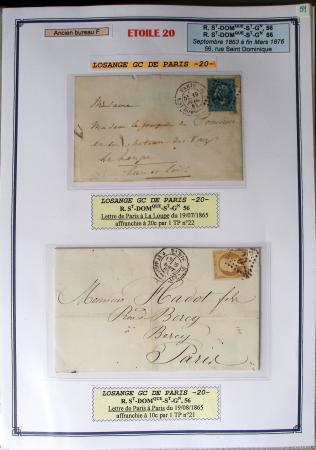 59
Ancien bureau F
ETOILE 20
R. Sᵀ-DOMᵠᵁᴱ-Sᵀ-Gᴺ, 56
R. Sᵀ-DOMᵠᵁᴱ-Sᵀ-Gᴺ 56
Septembre 1863 à fin Mars 1876
56, rue Saint Dominique
LOSANGE GC DE PARIS -20-
Madame
Madame la
en son château des
La Loupe
Eure et Loir
LOSANGE GC DE PARIS -20-
R. Sᵀ-DOMᵠᵁᴱ-Sᵀ-Gᴺ 56
Lettre de Paris à La Loupe du 19/07/1865
affranchie à 20c par 1 TP n°22
Monsieur Hadot fils
Port de Bercy
Bercy
Paris
LOSANGE GC DE PARIS -20-
R. Sᵀ-DOMᵠᵁᴱ-Sᵀ-Gᴺ, 56
Lettre de Paris à Paris du 19/08/1865
affranchie à 10c par 1 TP n°21